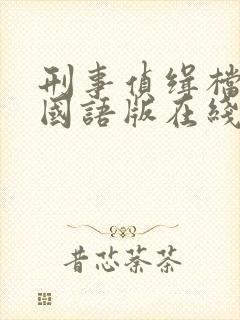 刑事偵缉檔
國語版在綫
昔芯萘茶